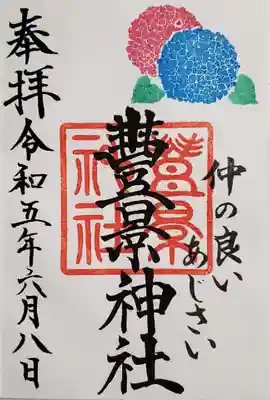 仲の良い
あじさい
豐景神社
豊景
神社
奉拝
令和五年六月八日